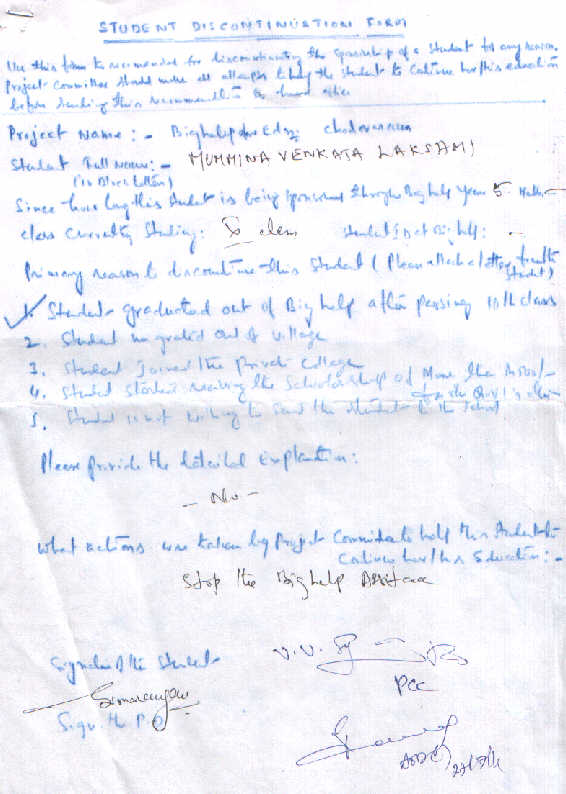 STUDENT DISCONTINUATION FORM
Use this form to recommended for discontinuating the sponsorship of a student for any reason.
Project Committee should make all attempts to help the student to continue her/his education
before sending this recommendation to head office
Project Name: - Bighelp for Edn; 
Student Full Name: - MUMMINA VENKATA LAKSHMI
(in Block Letters)
Since how long this student is being sponsored through Big help Year 5
class Currently Studying: X class Student ID at Big help: -
Primary reason to discontinue this Student (Please attach a letter from the
Student)
1. Student graduated out of Big help after passing 10th class
2. Student migrated out of village
3. Student Joined the Private College
4. Student started receiving the Scholarship of More than
5. Student is not willing to send the student to the school
Please provide the detailed explanation:
- No -
what actions were taken by Project Committee to help this student to
Continue her/his Education: -
Stop the Big help Assistance
Signature of the Student
V.V.
PCC
Sign. the P.O